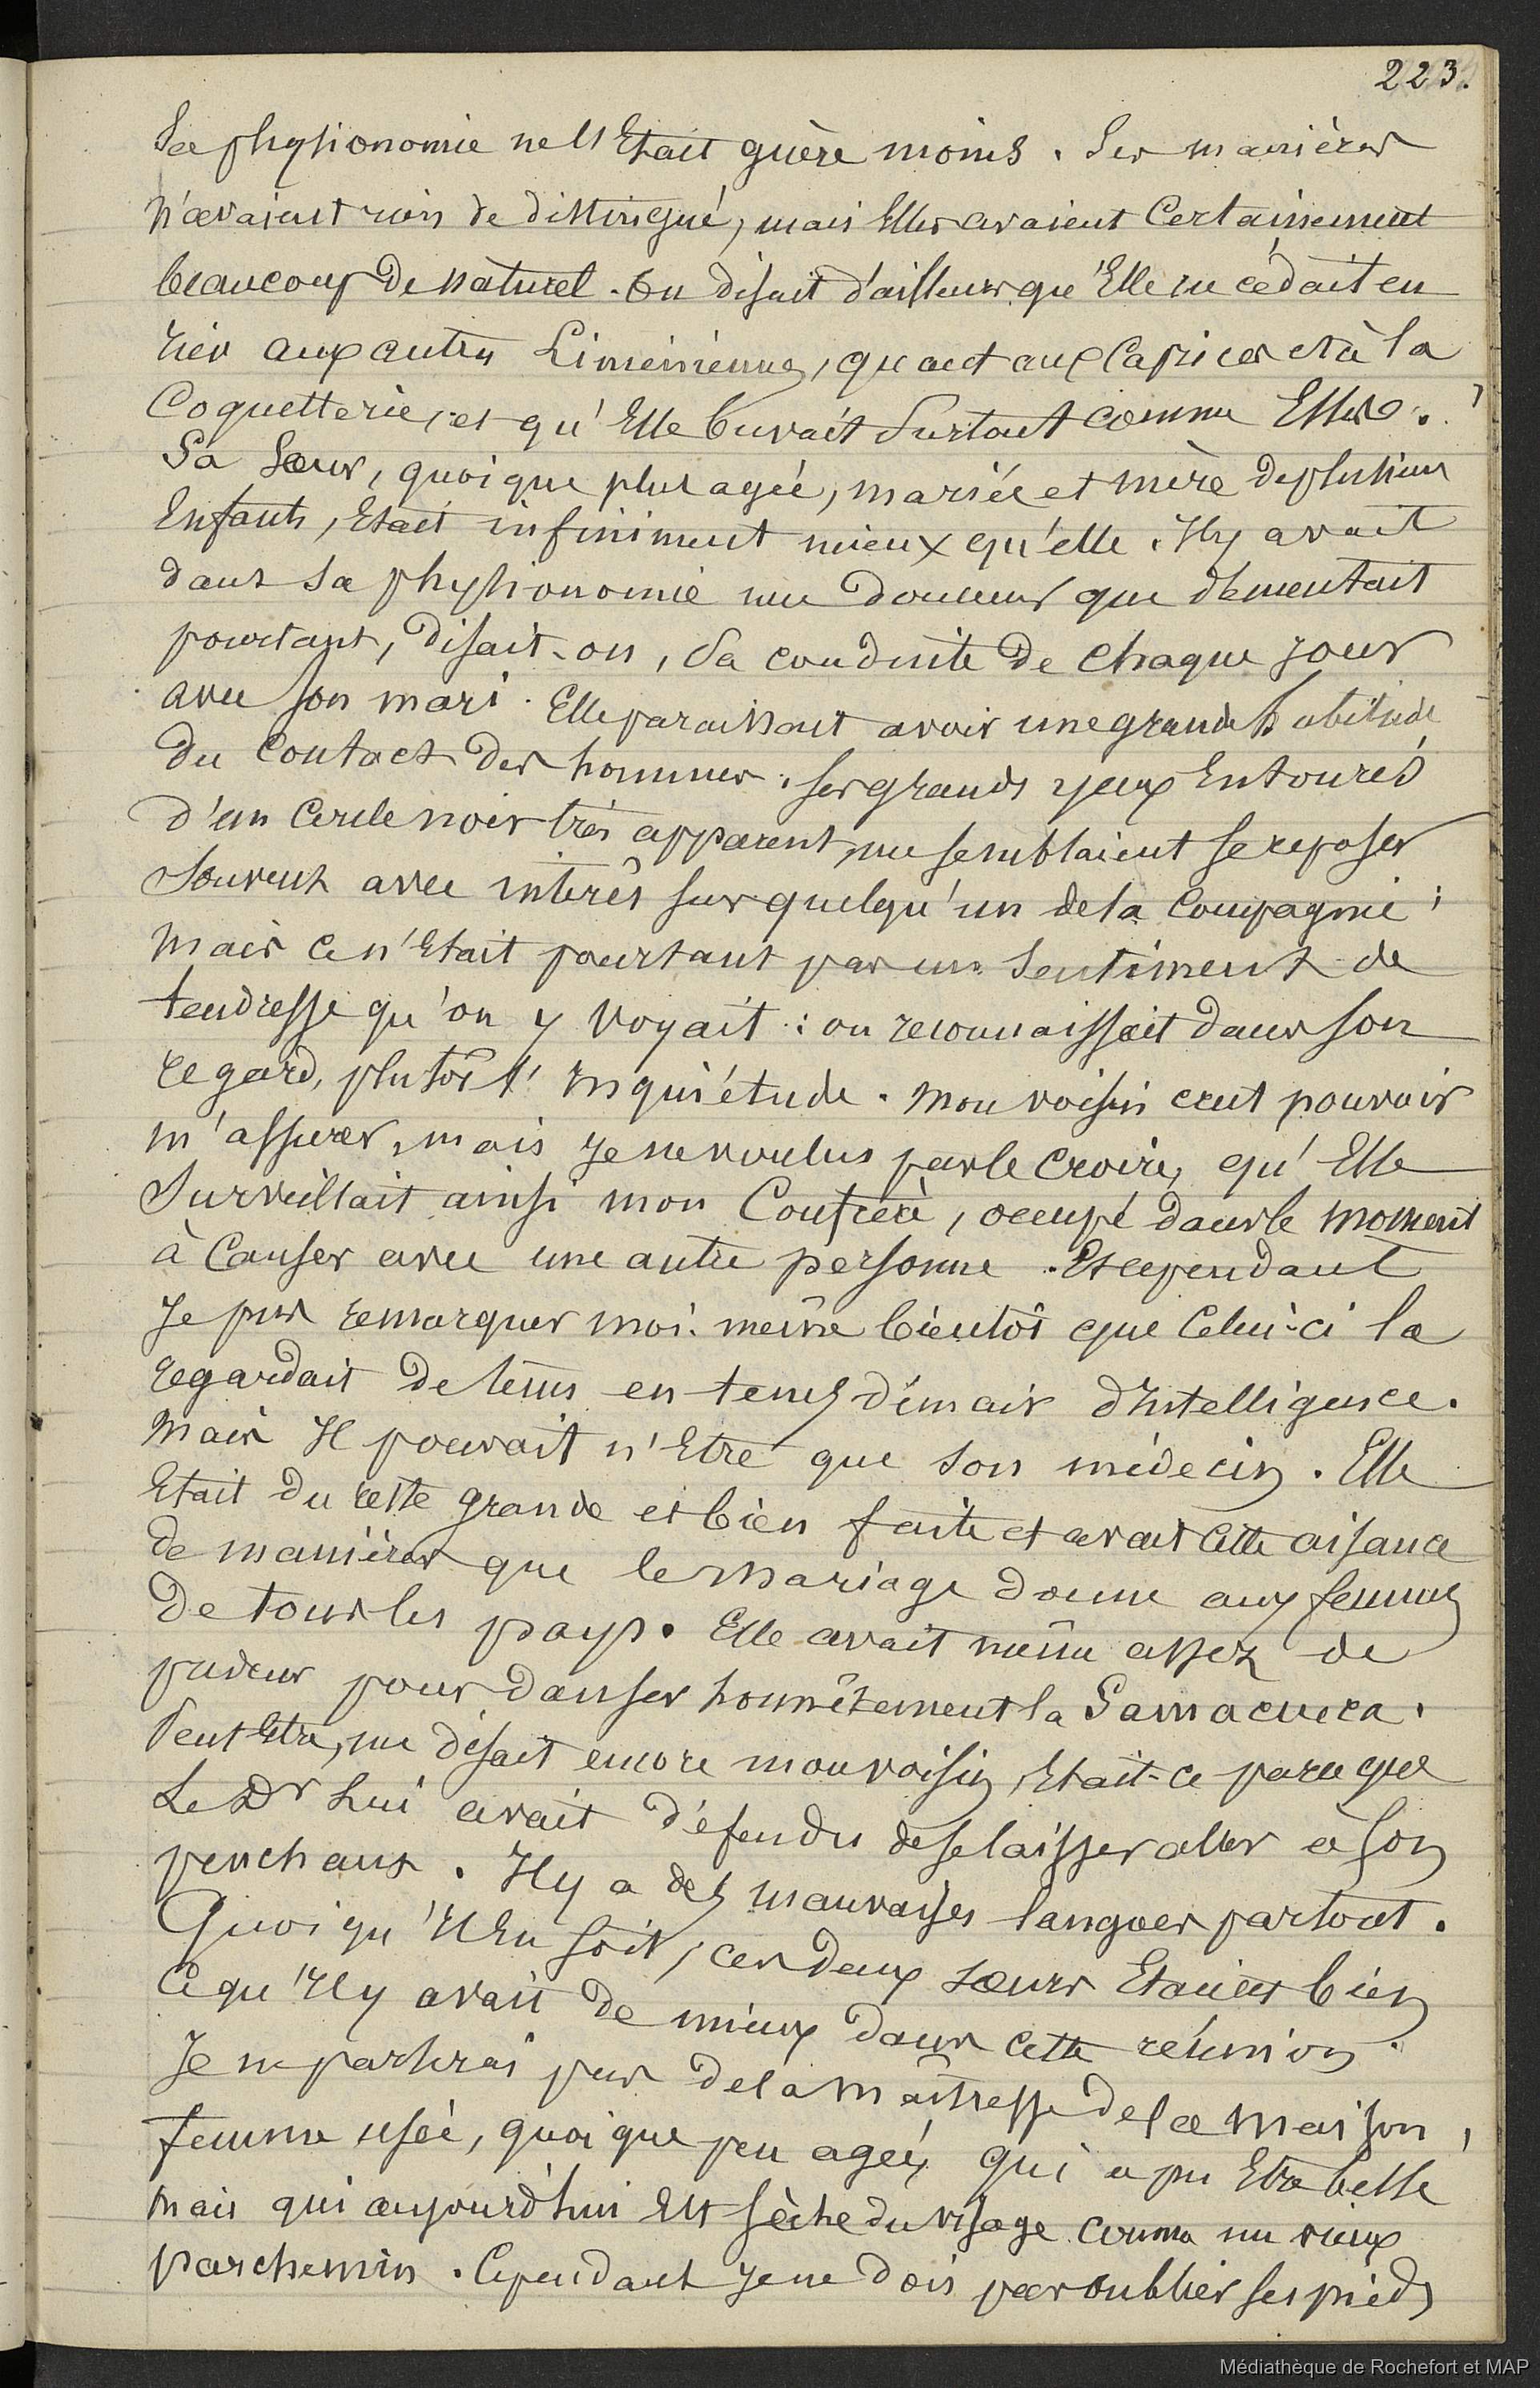 223.
Sa physionomie ne l'Etait guère moins. Ses manières
n'avaient rien de distingué, mais Elles avaient Certainement
beaucoup de naturel. On disait d'ailleurs qu'Elle ne cédait en
rien aux autres Liméniennes, quant aux Caprices et à la
Coquetterie, et qu'Elle buvait Surtout comme Elles.
Sa Sœur, quoique plus agée, mariée et mère de plusieurs
Enfants, Etait infiniment mieux qu'elle. Il y avait
dans sa physionomie une douceur que démentait
pourtant, disait-on, sa conduite de chaque jour
avec son mari. Elle paraissait avoir une grande habitude
du Contact des hommes. Ses grands yeux Entourés
d'un Cercle noir très apparent, me semblaient se reposer
Souvent avec intérêt sur quelqu'un de la Compagnie;
Mais Ce n'Etait pourtant pas un Sentiment de
tendresse qu'on y voyait: on reconnaissait dans son
regard, plutôt l'Inquiétude. Mon voisin crut pouvoir
m'assurer, mais Je ne voulus pas le Croire, qu'Elle
Surveillait ainsi mon Confrère, occupé dans le moment
à Causer avec une autre personne. Et cependant
Je pus remarquer moi-même bientôt que Celui-ci la
regardait de tems en tems d'un air d'Intelligence.
Mais Il pouvait n'Etre que son médecin. Elle
Etait du reste grande et bien faite et avait Cette aisance
de manières que le Mariage donne aux femmes
De tous les pays. Elle avait même assez de
pudeur pour danser honnêtement la Samacueca.
Peut Etre, me disait encore mon voisin, Etait-ce parce que
Le Dr Lui avait défendu de se laisser aller à son
penchant. Il y a des mauvaises langues partout.
Quoi qu'Il En soit, ces deux sœurs Etaient bien
Ce qu'Il y avait de mieux dans Cette réunion.
Je ne parlerai pas de la Maîtresse de la Maison,
femme usée, quoique peu agée, qui a pu Etre belle
mais qui aujourd'hui Est sèche du visage comme un vieux
parchemin. Cependant Je ne dois pas oublier ses pieds
Médiathèque de Rochefort et MAP